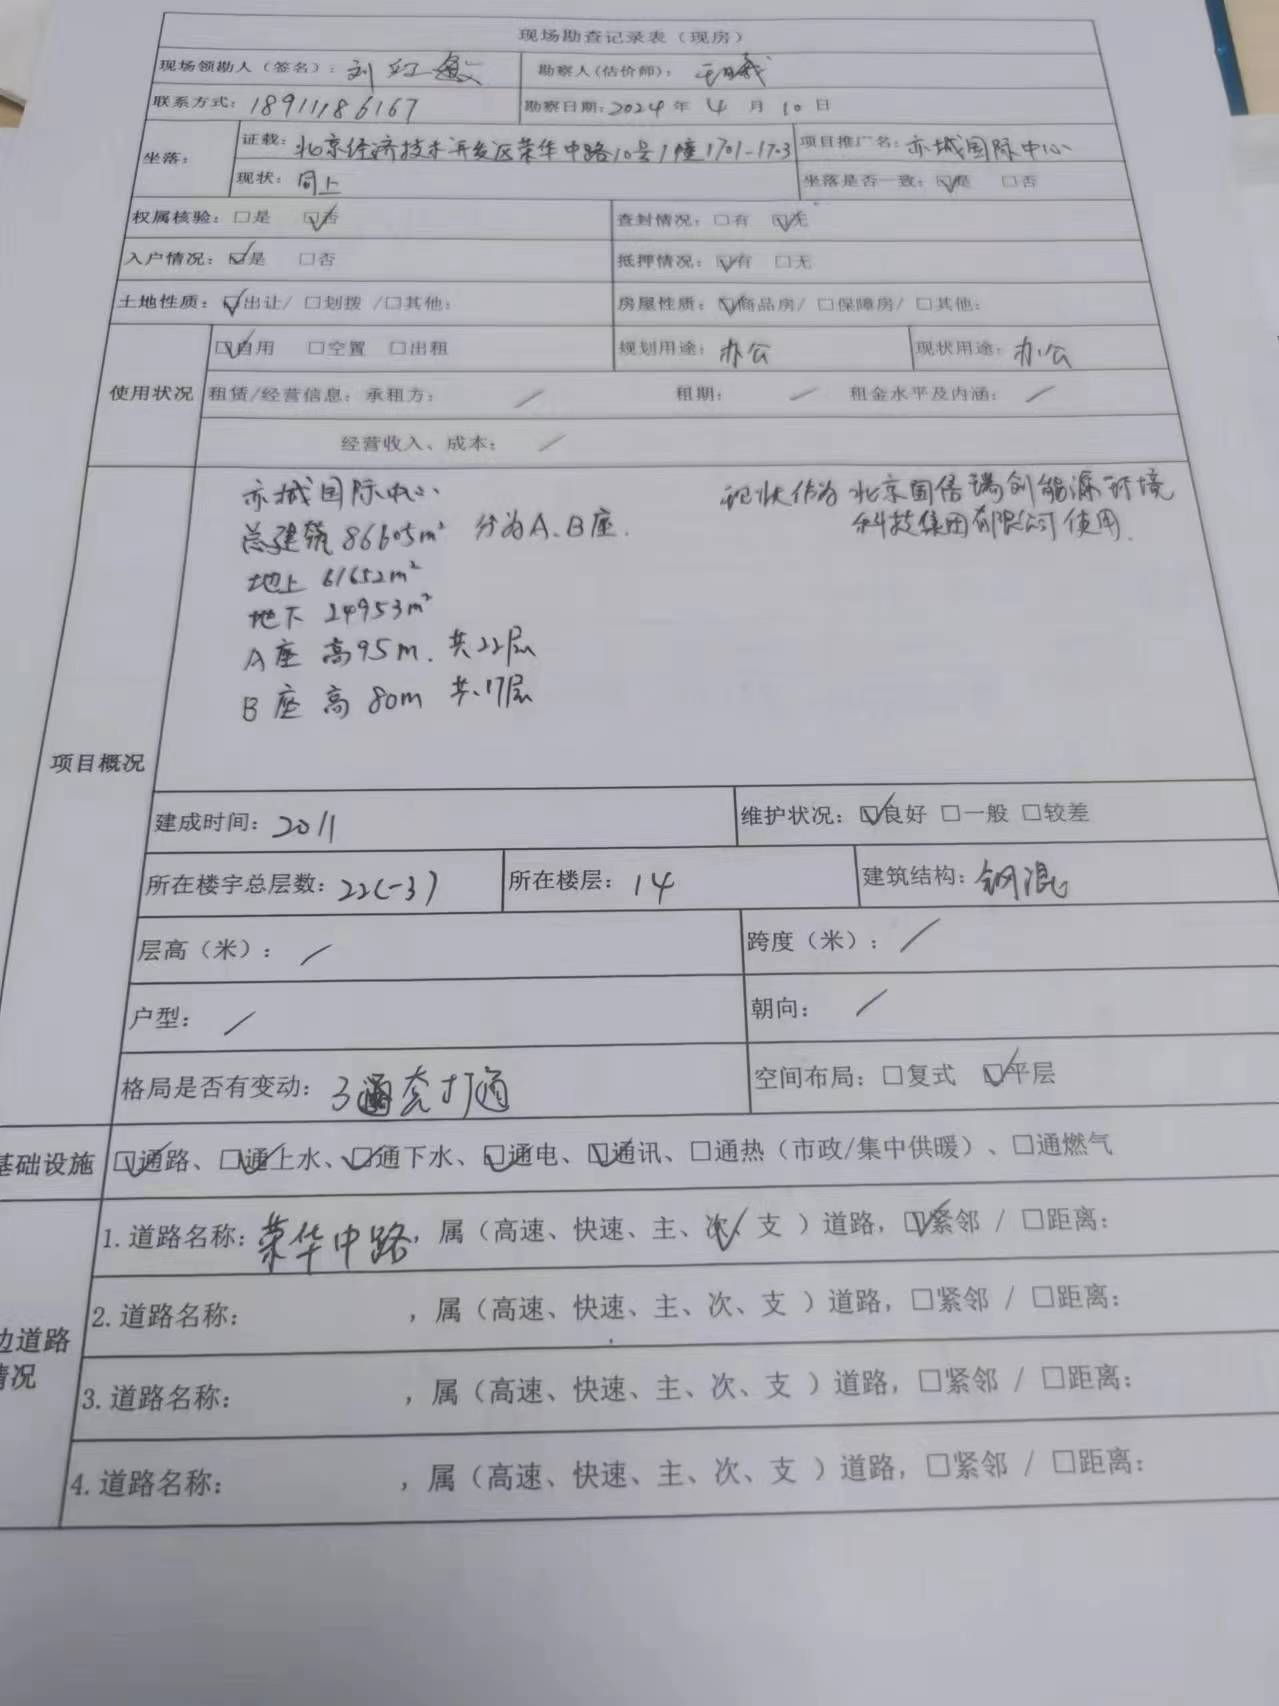 现场勘查记录表（现房）
现场领勘人（签名）：刘红 勘察人(估价师)：
联系方式：18911186167 勘察日期：2024年4月10日
坐落： 证载：北京经济技术开发区荣华中路10号1幢1701-1703 项目推广名：亦城国际中心
现状：同上 坐落是否一致：☑是 □否
权属核验：□是 ☑否 查封情况：□有 ☑无
入户情况：☑是 □否 抵押情况：☑有 □无
土地性质：☑出让/ □划拨 /□其他： 房屋性质：☑商品房/ □保障房/ □其他：
使用状况 ☑自用 □空置 □出租 规划用途：办公 现状用途：办公
租赁/经营信息：承租方：／ 租期：／ 租金水平及内涵：／
经营收入、成本：／
项目概况
亦城国际中心
总建筑86605m² 分为A、B座.
地上 61652m²
地下 24953m²
A座 高95m. 共22层
B座 高 80m 共17层
现状作为 北京国信瑞创能源环境
科技集团有限公司使用.
建成时间：2011 维护状况：☑良好 □一般 □较差
所在楼宇总层数：22(-3) 所在楼层：14 建筑结构：钢混
层高（米）：／ 跨度（米）：／
户型：／ 朝向：／
格局是否有变动：3套打通 空间布局：□复式 ☑平层
基础设施 ☑通路、☑通上水、☑通下水、☑通电、☑通讯、□通热（市政/集中供暖）、□通燃气
边道路
情况
1.道路名称：荣华中路，属（高速、快速、主、次✓、支 ）道路，☑紧邻 / □距离：
2.道路名称： ，属（高速、快速、主、次、支 ）道路，□紧邻 / □距离：
3.道路名称： ，属（高速、快速、主、次、支 ）道路，□紧邻 / □距离：
4.道路名称： ，属（高速、快速、主、次、支 ）道路，□紧邻 / □距离：